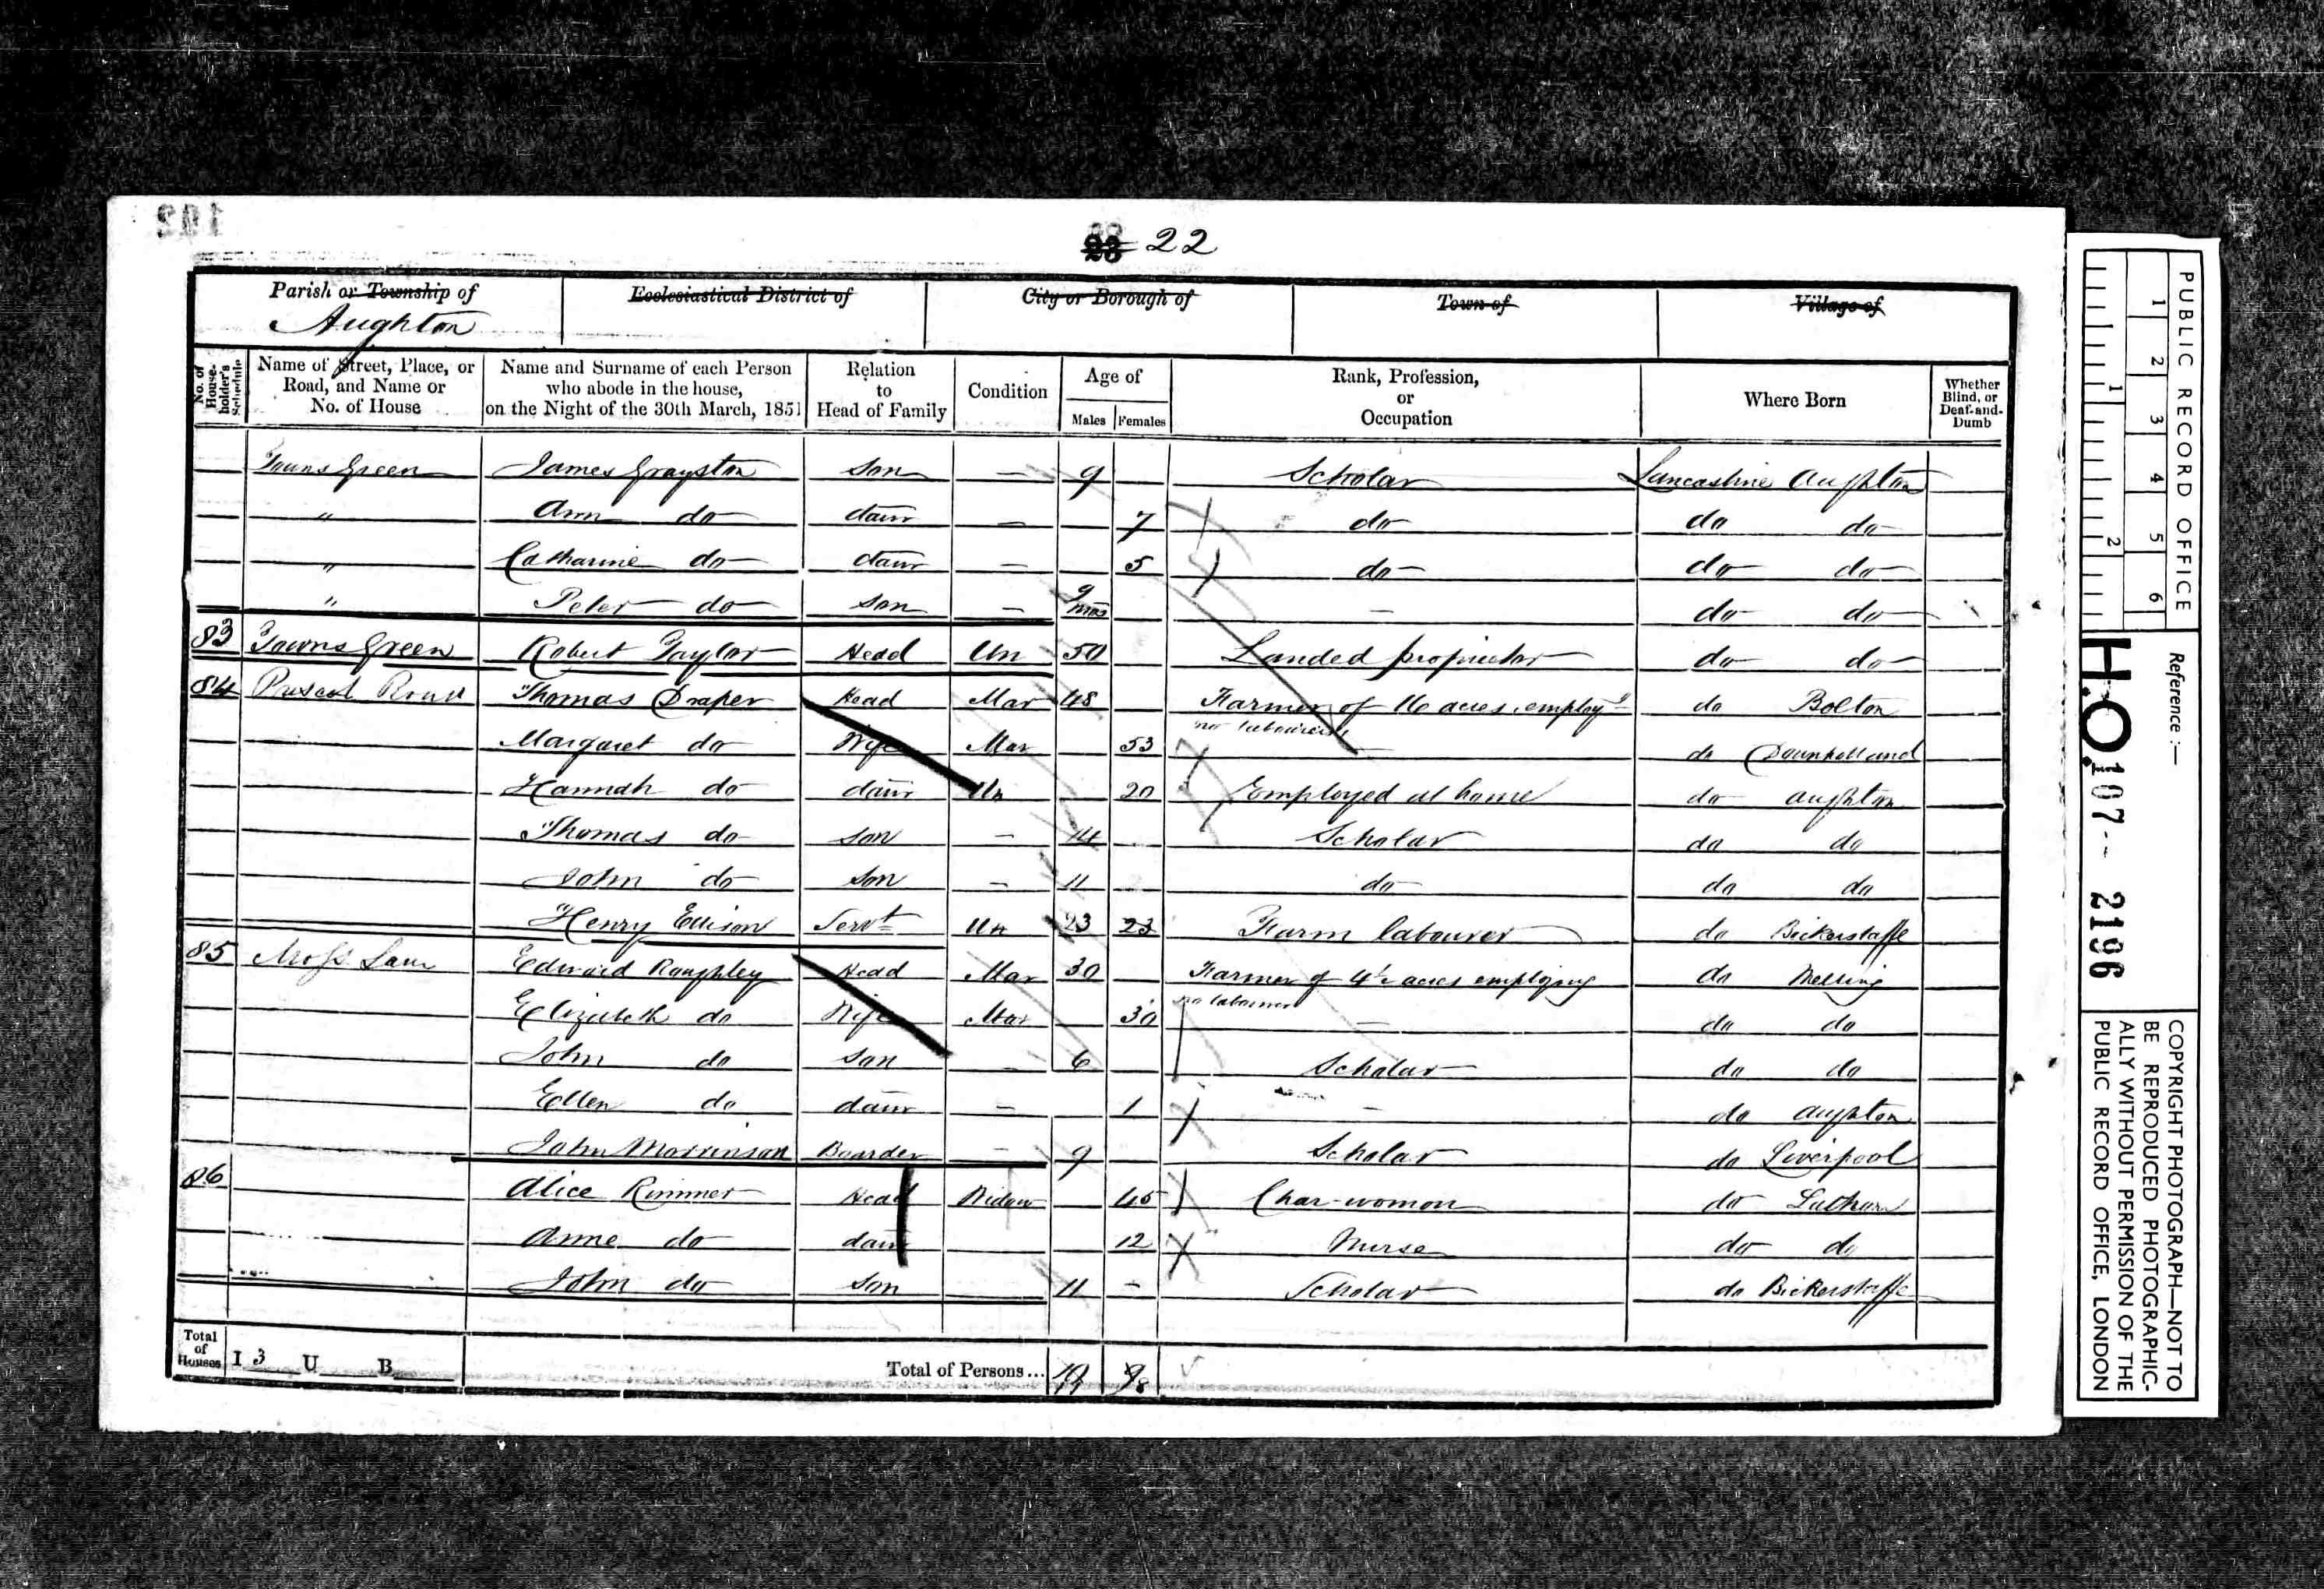 102
23 22
Parish or Township of
Aughton
Ecclesiastical District of
City or Borough of
Town of
Village of
No. of House-holder's Schedule
Name of Street, Place, or Road, and Name or No. of House
Name and Surname of each Person who abode in the house, on the Night of the 30th March, 1851
Relation to Head of Family
Condition
Age of
Males Females
Rank, Profession, or Occupation
Where Born
Whether Blind, or Deaf-and-Dumb
Towns Green James Grayston Son — 9 Scholar Lancashire Aughton
" Ann do daur — 7 do do do
" Catharine do daur — 5 do do do
" Peter do Son — 9 mos — do do
83 Towns Green Robert Taylor Head Un 50 Landed proprietor do do
84 Prescot Road Thomas Draper Head Mar 48 Farmer of 16 acres employg no labourers do Bolton
Margaret do Wife Mar 53 — do Downholland
Hannah do daur Un 20 Employed at home do Aughton
Thomas do Son — 14 Scholar do do
John do Son — 11 do do do
Henry Ellison Servt Un 23 23 Farm labourer do Bickerstaffe
85 Moss Lane Edward Roughley Head Mar 30 Farmer of 4½ acres employing no labourer do Melling
Elizabeth do Wife Mar 30 — do do
John do Son — 6 Scholar do do
Ellen do daur — 1 — do Aughton
John Boarder — 9 Scholar do Liverpool
86 Alice Rimmer Head Widow 45 Char-woman do Lathom
Anne do daur 12 Nurse do do
John do Son 11 – Scholar do Bickerstaffe
Total of Houses I 3 U B Total of Persons... 8
PUBLIC RECORD OFFICE
1 2 3 4 5 6
1 2
Reference :—
H.O. 107 - 2196
COPYRIGHT PHOTOGRAPH—NOT TO
BE REPRODUCED PHOTOGRAPHIC-
ALLY WITHOUT PERMISSION OF THE
PUBLIC RECORD OFFICE, LONDON